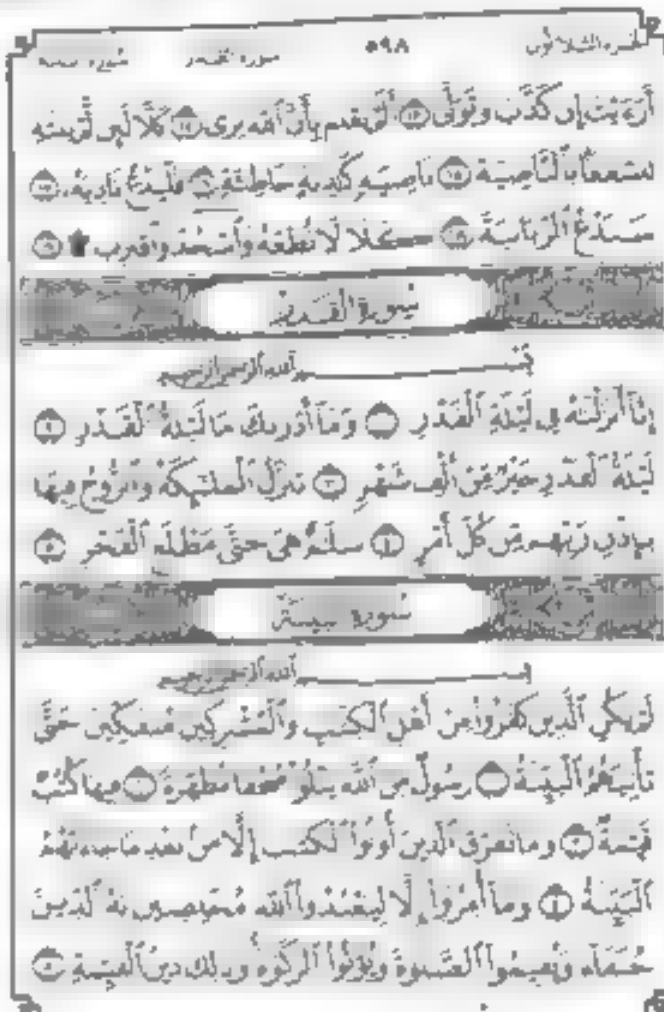 الجزء الثلاثون ٥٩٨ سورة القدر سورة البينة
أَرَءَيْتَ إِن كَذَّبَ وَتَوَلَّىٰٓ ١٣ أَلَمْ يَعْلَم بِأَنَّ ٱللَّهَ يَرَىٰ ١٤ كَلَّا لَئِن لَّمْ يَنتَهِ
لَنَسْفَعًۢا بِٱلنَّاصِيَةِ ١٥ نَاصِيَةٍ كَٰذِبَةٍ خَاطِئَةٍ ١٦ فَلْيَدْعُ نَادِيَهُۥ ١٧
سَنَدْعُ ٱلزَّبَانِيَةَ ١٨ كَلَّا لَا تُطِعْهُ وَٱسْجُدْ وَٱقْتَرِب ۩ ١٩
سُورَةُ القَدْرِ
بِسْمِ ٱللَّهِ ٱلرَّحْمَٰنِ ٱلرَّحِيمِ
إِنَّآ أَنزَلْنَٰهُ فِى لَيْلَةِ ٱلْقَدْرِ ١ وَمَآ أَدْرَىٰكَ مَا لَيْلَةُ ٱلْقَدْرِ ٢
لَيْلَةُ ٱلْقَدْرِ خَيْرٌ مِّنْ أَلْفِ شَهْرٍ ٣ تَنَزَّلُ ٱلْمَلَٰٓئِكَةُ وَٱلرُّوحُ فِيهَا
بِإِذْنِ رَبِّهِم مِّن كُلِّ أَمْرٍ ٤ سَلَٰمٌ هِىَ حَتَّىٰ مَطْلَعِ ٱلْفَجْرِ ٥
سُورَةُ البَيِّنَةِ
بِسْمِ ٱللَّهِ ٱلرَّحْمَٰنِ ٱلرَّحِيمِ
لَمْ يَكُنِ ٱلَّذِينَ كَفَرُوا۟ مِنْ أَهْلِ ٱلْكِتَٰبِ وَٱلْمُشْرِكِينَ مُنفَكِّينَ حَتَّىٰ
تَأْتِيَهُمُ ٱلْبَيِّنَةُ ١ رَسُولٌ مِّنَ ٱللَّهِ يَتْلُوا۟ صُحُفًا مُّطَهَّرَةً ٢ فِيهَا كُتُبٌ
قَيِّمَةٌ ٣ وَمَا تَفَرَّقَ ٱلَّذِينَ أُوتُوا۟ ٱلْكِتَٰبَ إِلَّا مِنۢ بَعْدِ مَا جَآءَتْهُمُ
ٱلْبَيِّنَةُ ٤ وَمَآ أُمِرُوٓا۟ إِلَّا لِيَعْبُدُوا۟ ٱللَّهَ مُخْلِصِينَ لَهُ ٱلدِّينَ
حُنَفَآءَ وَيُقِيمُوا۟ ٱلصَّلَوٰةَ وَيُؤْتُوا۟ ٱلزَّكَوٰةَ وَذَٰلِكَ دِينُ ٱلْقَيِّمَةِ ٥